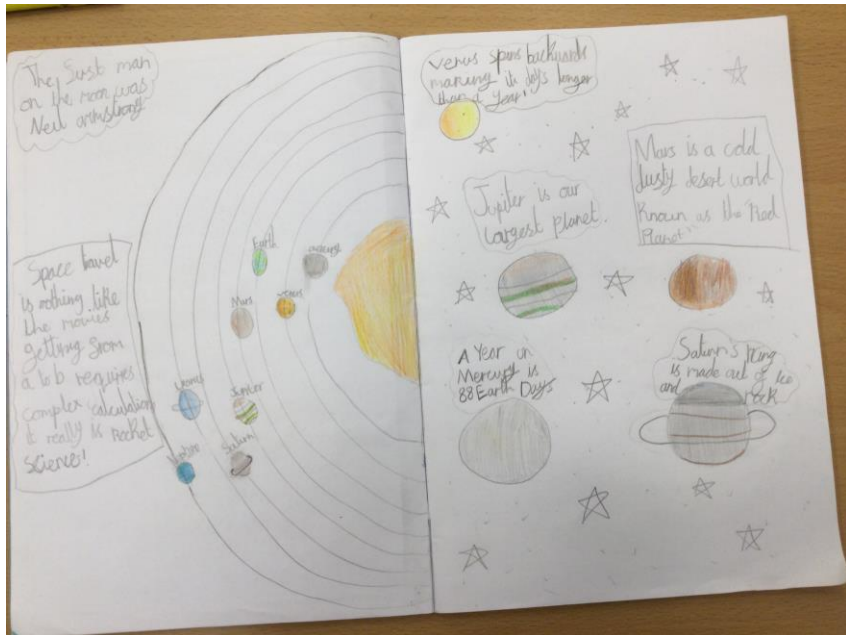 The first man
on the moon was
Neil armstrong
Space travel
is nothing like
the movies
getting from
a to b requires
complex calculation
it really is rocket
science!
Earth
mercury
Mars
venus
Uranus
Jupiter
Neptune
Saturn
Venus spins backwards
making its days longer
than a year!
Mars is a cold
dusty desert world
known as the "Red
Planet"
Jupiter is our
largest planet.
A Year on
Mercury is
88 Earth Days
Saturn's Ring
is made out of Ice
and rock